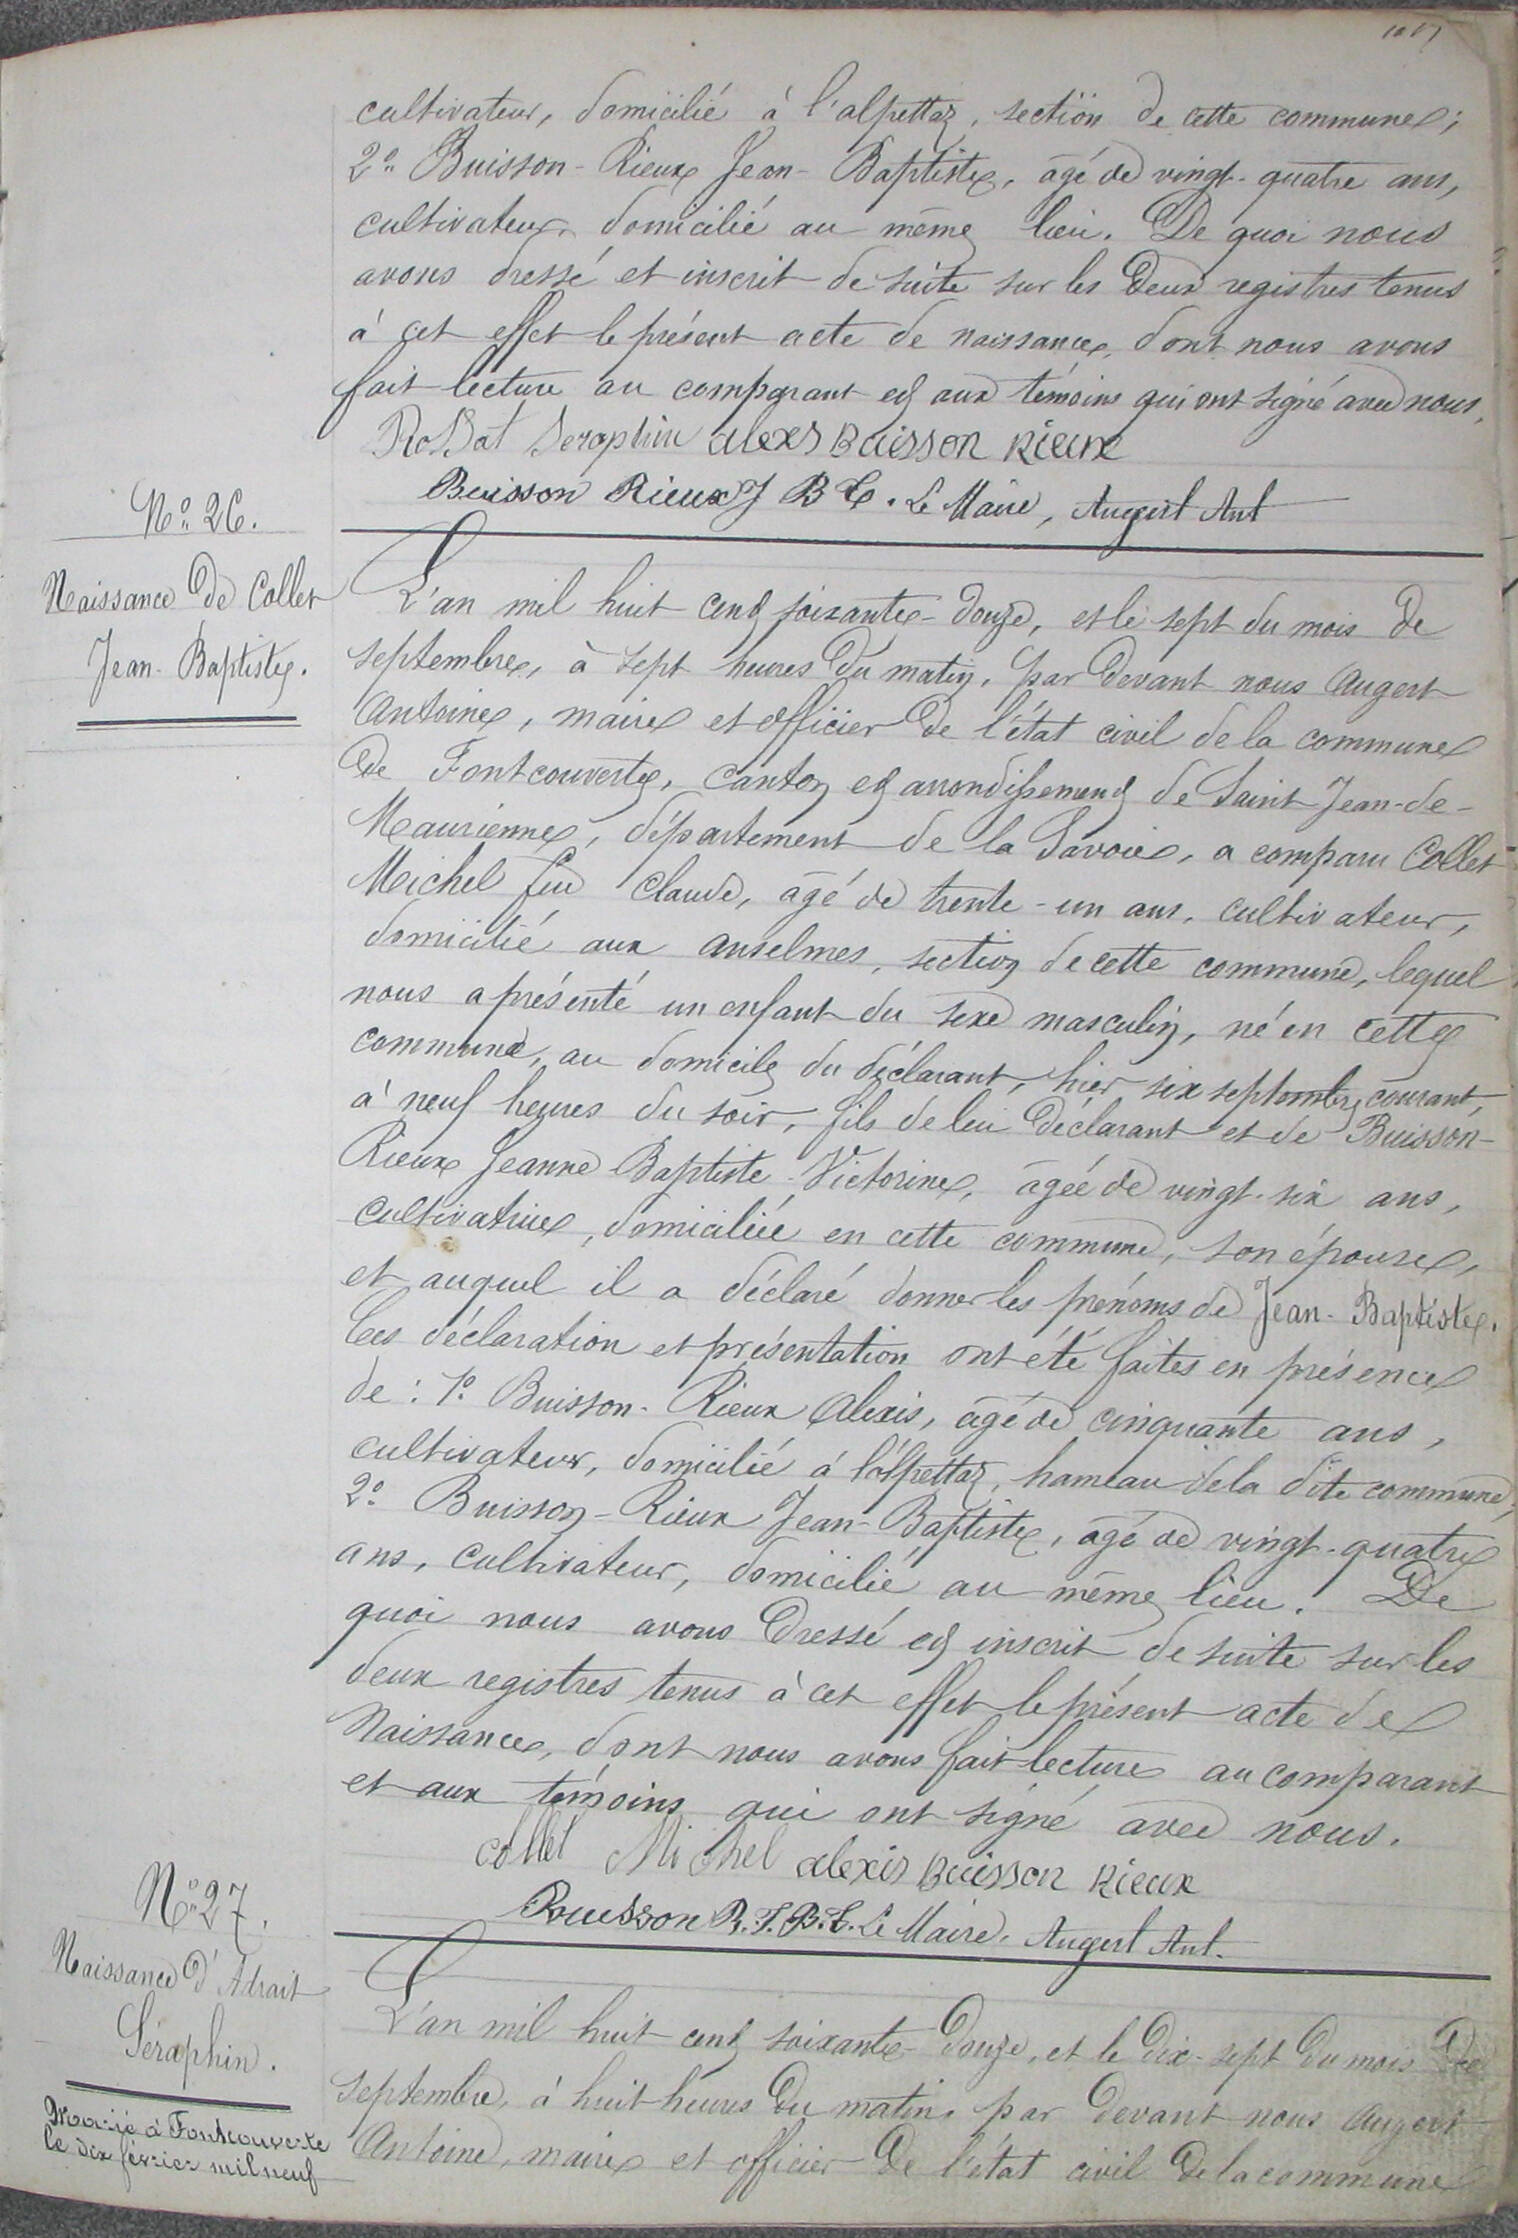 cultivateur, domicilié à l'alpettaz, section de cette commune;
2º Buisson-Rieux Jean-Baptiste, âgé de vingt-quatre ans,
cultivateur, domicilié au même lieu. De quoi nous
avons dressé et inscrit de suite sur les deux registres tenus
à cet effet le présent acte de naissance, dont nous avons
fait lecture au comparant et aux témoins qui ont signé avec nous.
Rossat Seraphin alexis Buisson Rieux
Buisson Rieux J B te. Le Maire, Augert Ant
Nº 26.
Naissance de Collet
Jean-Baptiste.
L'an mil huit cent soixante-douze, et le sept du mois de
septembre, à sept heures du matin, par devant nous Augert
Antoine, maire et officier de l'état civil de la commune
de Fontcouverte, canton et arrondissement de Saint Jean-de-
Maurienne, département de la Savoie, a comparu Collet
Michel feu Claude, âgé de trente-un ans, cultivateur,
domicilié aux anselmes, section de cette commune, lequel
nous a présenté un enfant du sexe masculin, né en cette
commune, au domicile du déclarant, hier six septembre courant,
à neuf heures du soir, fils de lui déclarant et de Buisson-
Rieux Jeanne Baptiste Victorine, âgée de vingt-six ans,
cultivatrice, domiciliée en cette commune, son épouse,
et auquel il a déclaré donner les prénoms de Jean-Baptiste.
Ces déclaration et présentation ont été faites en présence
de: 1º Buisson-Rieux Alexis, âgé de cinquante ans,
cultivateur, domicilié à l'alpettaz, hameau de la dite commune;
2º Buisson-Rieux Jean-Baptiste, âgé de vingt-quatre
ans, cultivateur, domicilié au même lieu. De
quoi nous avons dressé et inscrit de suite sur les
deux registres tenus à cet effet le présent acte de
Naissance, dont nous avons fait lecture au comparant
et aux témoins qui ont signé avec nous.
collet Michel alexis Buisson Rieux
Buisson R. J. B. te. Le Maire, Augert Ant.
Nº 27.
Naissance d'Adrait
Séraphin.
Marié à Fontcouverte
le dix février mil neuf
L'an mil huit cent soixante-douze, et le dix-sept du mois de
septembre, à huit heures du matin, par devant nous Augert
Antoine, maire et officier de l'état civil de la commune